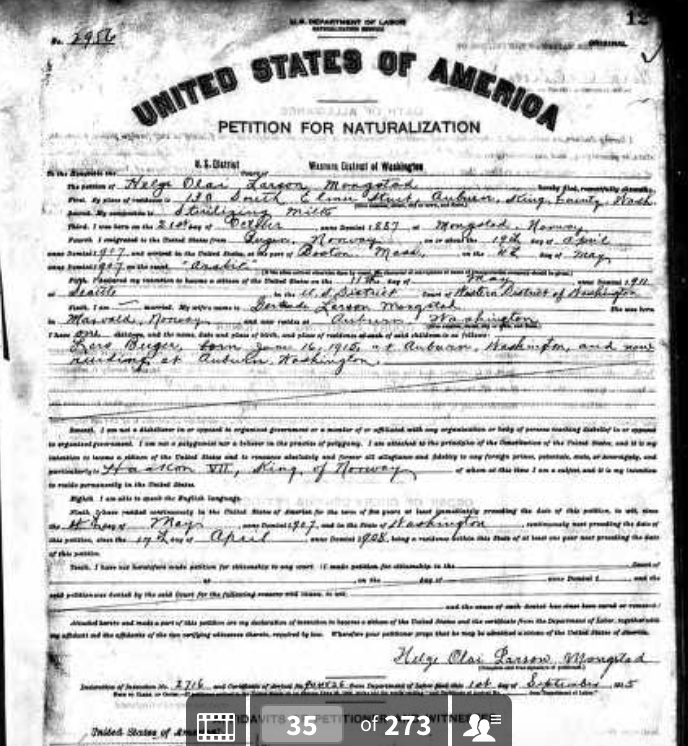 U.S. DEPARTMENT OF LABOR
NATURALIZATION SERVICE
12
No. 2956
ORIGINAL
UNITED STATES OF AMERICA
PETITION FOR NATURALIZATION
U. S. District Court of Western District of Washington
The petition of Helge Olai Larson Mongstad hereby filed, respectfully showeth:
First. My place of residence is 130 South Elm Street, Auburn, King County, Wash.
Second. My occupation is Sterilizing Milk
Third. I was born on the 21st day of October anno Domini 1887 at Mongstad, Norway
Fourth. I emigrated to the United States from Norway on or about the 19th day of April
anno Domini 1907, and arrived in the United States, at the port of Boston Mass, on the 4th day of May
anno Domini 1907 on the vessel "Arabic"
Fifth. I declared my intention to become a citizen of the United States on the 11th day of May anno Domini 1911
at Seattle in the U.S. District Court of Western District of Washington
Sixth. I am married. My wife's name is Larson Mongstad She was born
in Norway and now resides at Auburn Washington
I have one children, and the name, date and place of birth, and place of residence of each of said children is as follows:
Lars Birger, born June 16, 1915, at Auburn, Washington, and now
residing at Auburn, Washington.
Seventh. I am not a disbeliever in or opposed to organized government or a member of or affiliated with any organization or body of persons teaching disbelief in or opposed
to organized government. I am not a polygamist nor a believer in the practice of polygamy. I am attached to the principles of the Constitution of the United States, and it is my
intention to become a citizen of the United States and to renounce absolutely and forever all allegiance and fidelity to any foreign prince, potentate, state, or sovereignty, and
particularly to Haakon VII, King of Norway of whom at this time I am a subject, and it is my intention
to reside permanently in the United States.
Eighth. I am able to speak the English language.
Ninth. I have resided continuously in the United States of America for the term of five years at least immediately preceding the date of this petition, to wit, since
the 4th day of May anno Domini 1907, and in the State of Washington continuously next preceding the date of
this petition, since the 17th day of April anno Domini 1908, being a residence within this State of at least one year next preceding the date
of this petition.
Tenth. I have not heretofore made petition for citizenship to any court. (I made petition for citizenship to the Court of
at , on the day of anno Domini 1 , and the
said petition was denied by the said Court for the following reasons and causes, to wit,
and the cause of such denial has since been cured or removed.)
Attached hereto and made a part of this petition are my declaration of intention to become a citizen of the United States and the certificate from the Department of Labor, together with
my affidavit and the affidavits of the two verifying witnesses thereto, required by law. Wherefore your petitioner prays that he may be admitted a citizen of the United States of America.
Helge Olai Larson Mongstad
(Complete and true signature of petitioner.)
Declaration of Intention No. 2716 and Certificate of Arrival No. from Department of Labor filed this 1st day of September 1915
35 of 273
United States of America